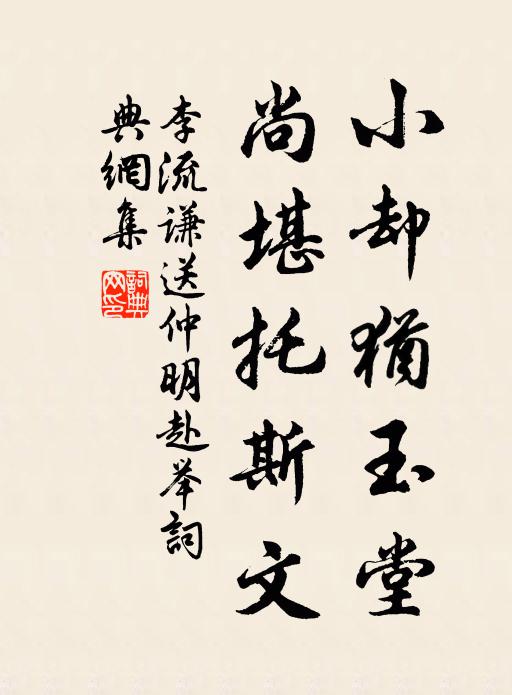 小却犹玉堂
尚堪托斯文
李流谦送仲明赴举詞
典網集
詞典网印